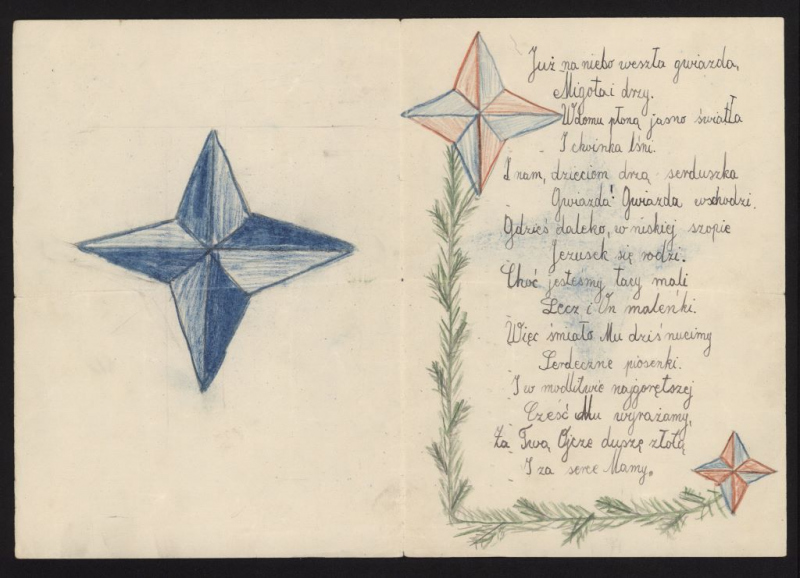 Już na niebo weszła gwiazda,
Migoła i drzy.
W domu płoną jasno światła
I choinka lśni.
I nam, dzieciom drżą serduszka
Gwiazda! Gwiazda wschodzi.
Gdzieś daleko, w niskiej szopie
Jezusek się rodzi.
Choć jesteśmy tacy mali
Lecz i On maleńki.
Więc śmiało Mu dziś nucimy
Serdeczne piosenki.
I w modlitwie najgorętszej
Cześć Mu wyrażamy,
Za Twą Ojcze duszę złotą
I za serce Mamy.